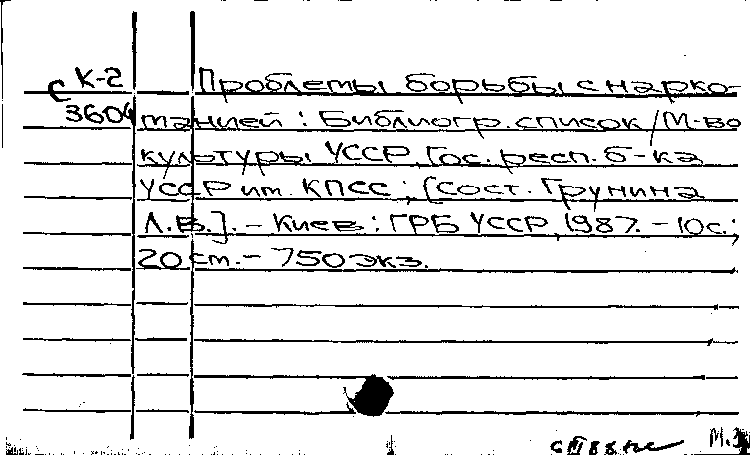 С К-2
3604
Проблемы борьбы с нарко-
манией : Библиогр. список / М-во
культуры УССР, Гос. респ. б-ка
УССР им. КПСС ; [Сост. Грунина
Л.В.]. - Киев : ГРБ УССР, 1987. - 10с.;
20 см. - 750 экз.
М.З